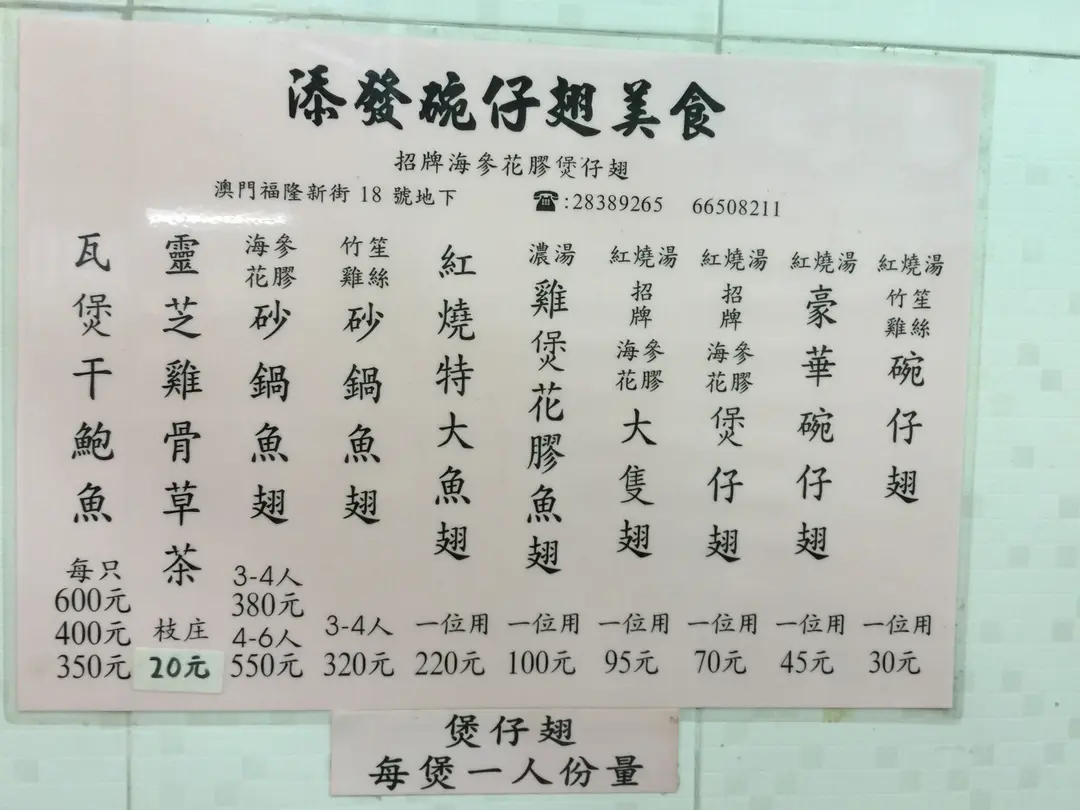 添發碗仔翅美食
招牌海參花膠煲仔翅
澳門福隆新街 18 號地下 ☎:28389265 66508211
紅燒湯 竹笙雞絲 碗仔翅 一位用 30元
紅燒湯 豪華碗仔翅 一位用 45元
紅燒湯 招牌 海參花膠 煲仔翅 一位用 70元
紅燒湯 招牌 海參花膠 大隻翅 一位用 95元
濃湯 雞煲花膠魚翅 一位用 100元
紅燒特大魚翅 一位用 220元
竹笙雞絲 砂鍋魚翅 3-4人 320元
海參花膠 砂鍋魚翅 3-4人 380元 4-6人 550元
靈芝雞骨草茶 枝庄 20元
瓦煲干鮑魚 每只 600元 400元 350元
煲仔翅
每煲一人份量